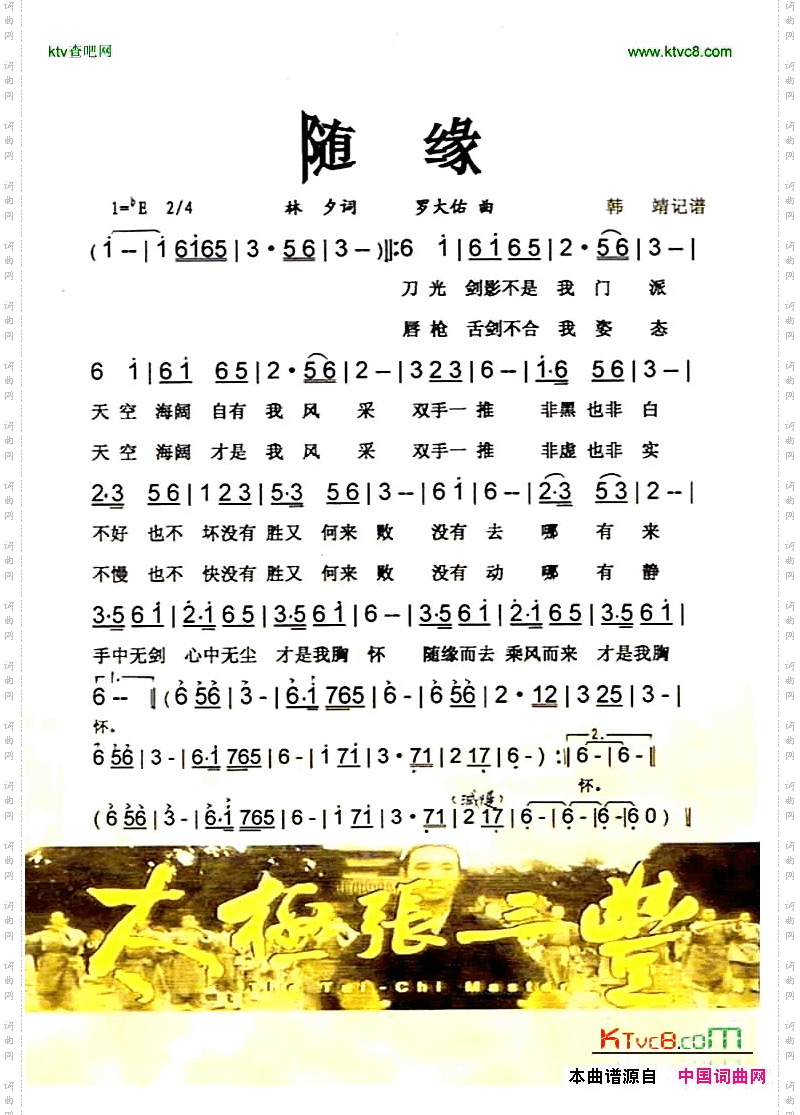 ktv查吧网 www.ktvc8.com
随 缘
1=♭E 2/4 林 夕词 罗大佑 曲 韩 靖记谱
( i -- | i 6i65 | 3 · 5 6 | 3 -- ) ‖: 6 i | 6 i 6 5 | 2 · 5 6 | 3 -- |
刀 光 剑影不是 我 门 派
唇 枪 舌剑不合 我 姿 态
6 i | 6 i 6 5 | 2 · 5 6 | 2 -- | 3 2 3 | 6 -- | i · 6 5 6 | 3 -- |
天 空 海阔 自有 我 风 采 双手一 推 非黑 也非 白
天 空 海阔 才是 我 风 采 双手一 推 非虚 也非 实
2 · 3 5 6 | 1 2 3 | 5 · 3 5 6 | 3 -- | 6 i | 6 -- | 2 · 3 5 3 | 2 -- |
不好 也不 坏没有 胜又 何来 败 没有 去 哪 有 来
不慢 也不 快没有 胜又 何来 败 没有 动 哪 有 静
3 · 5 6 i | 2 · i 6 5 | 3 · 5 6 i | 6 -- | 3 · 5 6 i | 2 · i 6 5 | 3 · 5 6 i |
手中无剑 心中无尘 才是我胸 怀 随缘而去 乘风而来 才是我胸
1.
6 -- ‖ ( 6 56 | 3 - | 6 · i 765 | 6 - | 6 56 | 2 · 12 | 3 25 | 3 - |
怀。
2.
6 56 | 3 - | 6 · i 765 | 6 - | i 71 | 3 · 71 | 2 17 | 6 - ) :‖ 6 - | 6 - ‖
怀。
(减慢)
( 6 56 | 3 - | 6 · i 765 | 6 - | i 71 | 3 · 71 | 2 17 | 6 - | 6 - | 6 - | 6 0 ) ‖
太極張三豐
The Tai-Chi Master
KTvc8.com
本曲谱源自 中国词曲网
词曲网